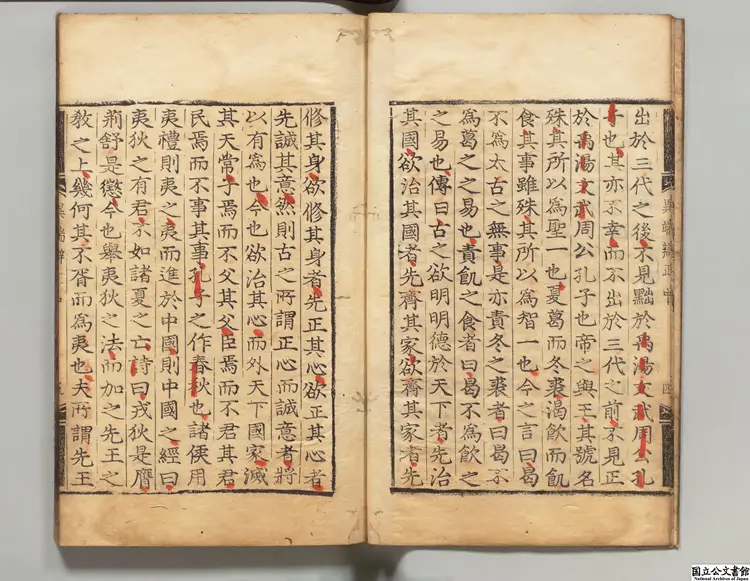 異端辯正中 四
出於三代之後不見黜於禹湯文武周公孔
子也其亦不幸而不出於三代之前不見正
於禹湯文武周公孔子也帝之與王其號名
殊其所以爲聖一也夏葛而冬裘渴飮而飢
食其事雖殊其所以爲智一也今之言曰曷
不爲太古之無事是亦責冬之裘者曰曷不
爲葛之之易也責飢之食者曰曷不爲飮之
之易也傳曰古之欲明明德於天下者先治
其國欲治其國者先齊其家欲齊其家者先
修其身欲修其身者先正其心欲正其心者
先誠其意然則古之所謂正心而誠意者將
以有爲也今也欲治其心而外天下國家滅
其天常子焉而不父其父臣焉而不君其君
民焉而不事其事孔子之作春秋也諸侯用
夷禮則夷之夷而進於中國則中國之經曰
夷狄之有君不如諸夏之亡詩曰戎狄是膺
荊舒是懲今也舉夷狄之法而加之先王之
敎之上幾何其不胥而爲夷也夫所謂先王
国立公文書館
National Archives of Japan